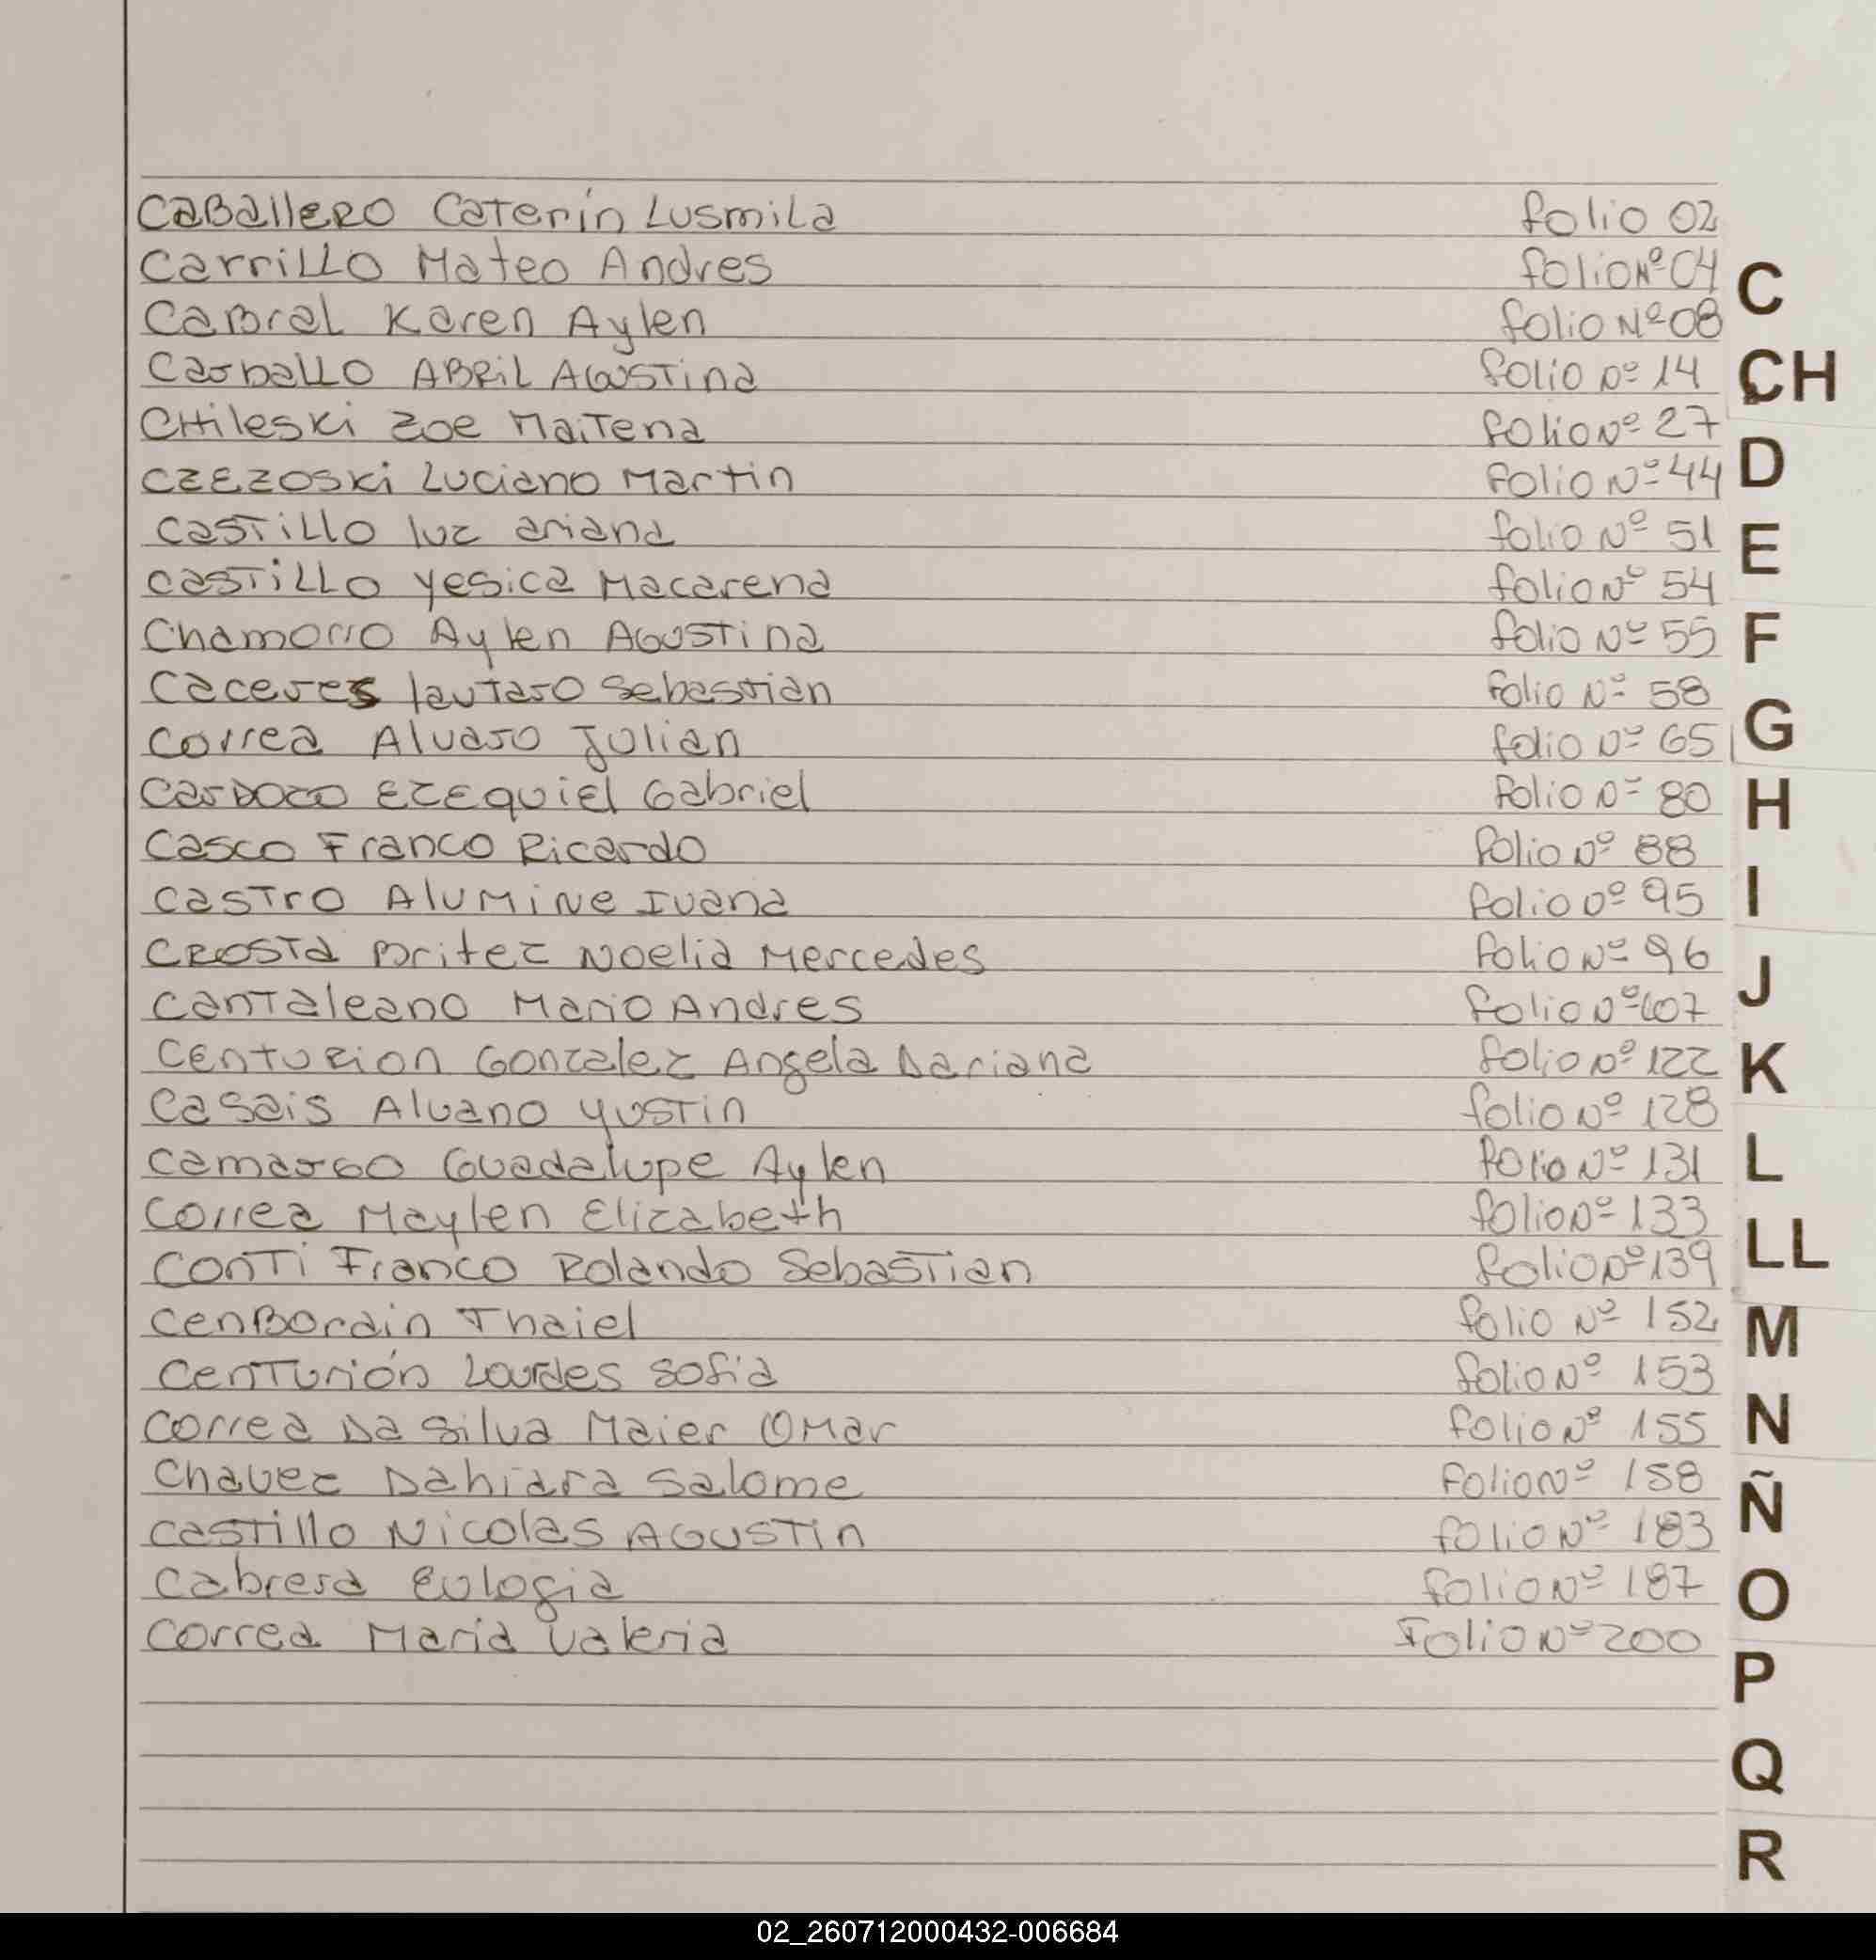 CaBallero Caterín Lusmila folio 02
Carrillo Mateo Andres folio Nº 04
CaBral Karen Aylen folio Nº 08
Carballo ABRil AGUSTina folio Nº 14
CHileski Zoe MaiTena folio Nº 27
CZEZOSKi Luciano Martin folio Nº 44
CaSTillo luz ariana folio Nº 51
CaSTiLLO Yesica Macarena folio Nº 54
Chamorro Aylen AGUSTina folio Nº 55
Caceres lauTaro Sebastian folio Nº 58
Correa Alvaro Julian folio Nº 65
CarDozo EZEquiEl Gabriel folio Nº 80
Casco Franco Ricardo folio Nº 88
CaSTro AluMiNe Ivana folio Nº 95
CROSTa Britez Noelia Mercedes folio Nº 96
CanTaleano Mario Andres folio Nº 107
CenTuRion Gonzalez Angela Dariana folio Nº 122
Casais Alvano YUSTin folio Nº 128
Camargo Guadalupe Aylen folio Nº 131
Correa Maylen Elizabeth folio Nº 133
ConTi Franco Rolando SebasTian folio Nº 139
CenBordin Thaiel folio Nº 152
CenTurión Lourdes Sofia folio Nº 153
Correa Da Silva Maier OMar folio Nº 155
Chavez Dahiara Salome folio Nº 158
CaSTillo Nicolas AGUSTin folio Nº 183
Cabrera Eulogia folio Nº 187
Correa Maria Valeria Folio Nº 200
C
CH
D
E
F
G
H
I
J
K
L
LL
M
N
Ñ
O
P
Q
R
02_260712000432-006684